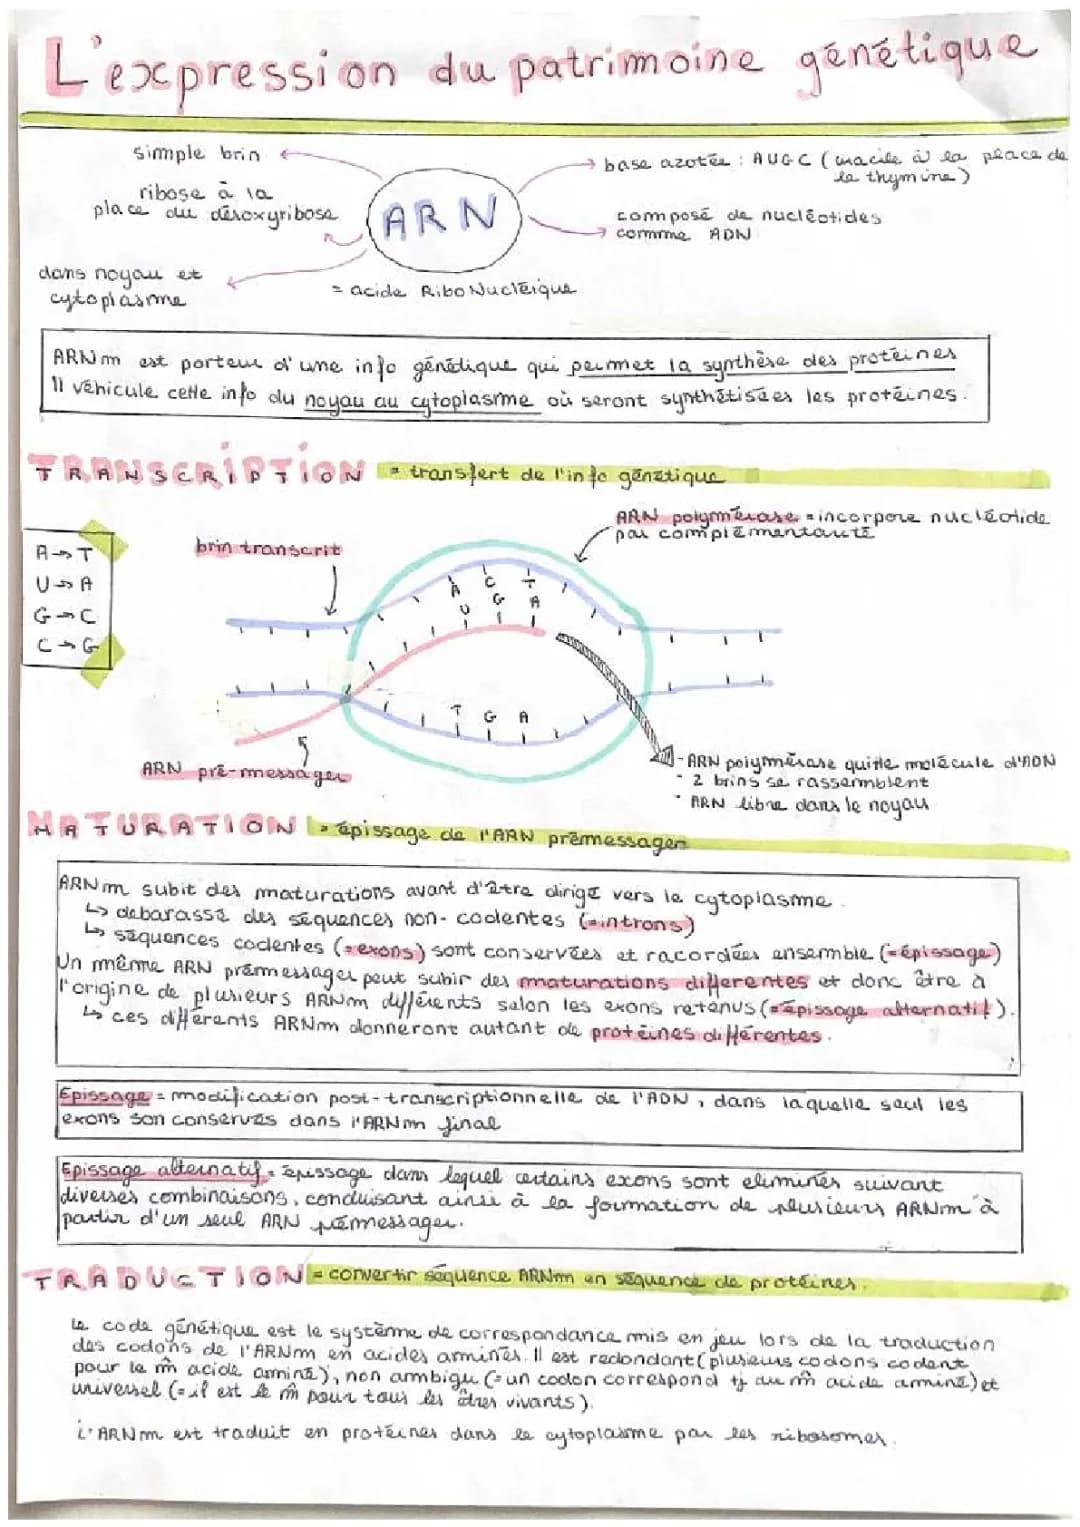 L'expression du patrimoine génétique
simple brin
base azotée : AUGC (uracile à la place de
la thymine)
ribose à la
place du désoxyribose
ARN
composé de nucléotides
comme ADN
dans noyau et
cytoplasme
= acide RiboNucléique
ARNm est porteur d'une info génétique qui permet la synthèse des protéines
Il véhicule cette info du noyau au cytoplasme où seront synthétisées les protéines.
TRANSCRIPTION = transfert de l'info génétique
ARN polymérase = incorpore nucléotide
par complémentarité
brin transcrit
A → T
U → A
G → C
C → G
A C T
U G A
T G A
ARN pré-messager
- ARN polymérase quitte molécule d'ADN
- 2 brins se rassemblent
- ARN libre dans le noyau
MATURATION = épissage de l'ARN prémessager
ARNm subit des maturations avant d'être dirigé vers le cytoplasme.
↳ débarassé des séquences non-codentes (=introns)
↳ séquences codentes (=exons) sont conservées et racordées ensemble (=épissage)
Un même ARN prémessager peut subir des maturations differentes et donc être à
l'origine de plusieurs ARNm différents selon les exons retenus (=épissage alternatif).
↳ ces différents ARNm donneront autant de protéines différentes.
Epissage = modification post-transcriptionnelle de l'ADN, dans laquelle seul les
exons son conservés dans l'ARNm final
Epissage alternatif = épissage dans lequel certains exons sont eliminés suivant
diverses combinaisons, conduisant ainsi à la formation de plusieurs ARNm à
partir d'un seul ARN prémessager.
TRADUCTION = convertir séquence ARNm en séquence de protéines.
Le code génétique est le système de correspondance mis en jeu lors de la traduction
des codons de l'ARNm en acides aminés. Il est redondant (plusieurs codons codent
pour le m̂ acide aminé), non ambigu (=un codon correspond tj au m̂ acide aminé) et
universel (=il est le m̂ pour tous les êtres vivants).
L'ARNm est traduit en protéines dans le cytoplasme par les ribosomes.